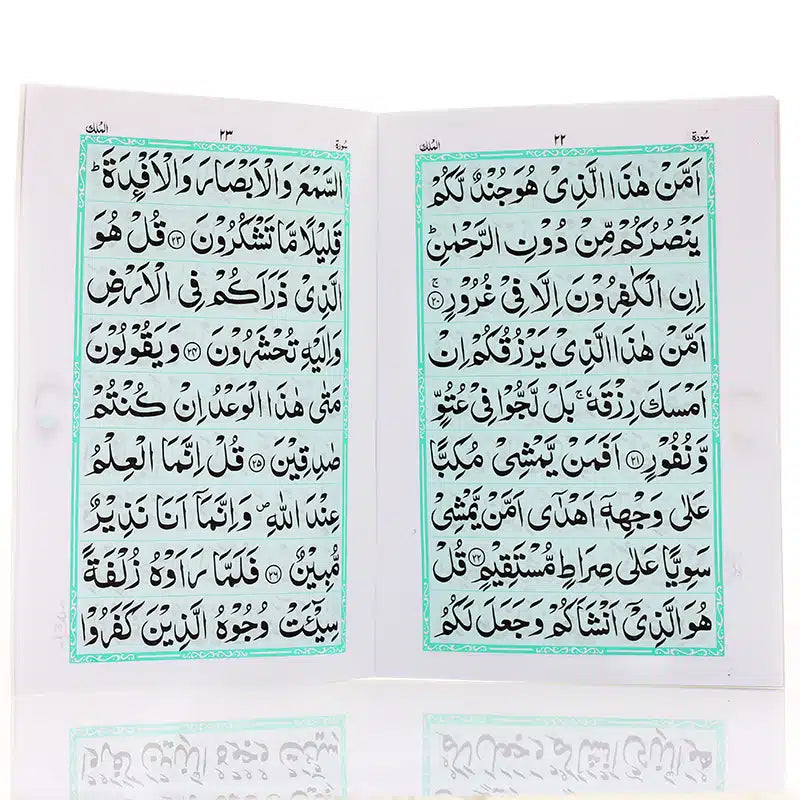 سُورة ٢٢ المُلك
اَمَّنْ هٰذَا الَّذِىْ هُوَ جُنْدٌ لَّكُمْ
يَنْصُرُكُمْ مِّنْ دُوْنِ الرَّحْمٰنِؕ
اِنِ الْكٰفِرُوْنَ اِلَّا فِىْ غُرُوْرٍۚ ‏﴿۲۰﴾
اَمَّنْ هٰذَا الَّذِىْ يَرْزُقُكُمْ اِنْ
اَمْسَكَ رِزْقَهٗۚ بَلْ لَّجُّوْا فِىْ عُتُوٍّ
وَّنُفُوْرٍ ﴿۲۱﴾ اَفَمَنْ يَّمْشِىْ مُكِبًّا
عَلٰى وَجْهِهٖۤ اَهْدٰٓى اَمَّنْ يَّمْشِىْ
سَوِيًّا عَلٰى صِرَاطٍ مُّسْتَقِيْمٍ ﴿۲۲﴾ قُلْ
هُوَ الَّذِىْۤ اَنْشَاَكُمْ وَجَعَلَ لَكُمُ
سُورة ٢٣ المُلك
السَّمْعَ وَالْاَبْصَارَ وَالْاَفْـِٕدَةَؕ
قَلِيْلًا مَّا تَشْكُرُوْنَ ﴿۲۳﴾ قُلْ هُوَ
الَّذِىْ ذَرَاَكُمْ فِى الْاَرْضِ
وَاِلَيْهِ تُحْشَرُوْنَ ﴿۲۴﴾ وَيَقُوْلُوْنَ
مَتٰى هٰذَا الْوَعْدُ اِنْ كُنْتُمْ
صٰدِقِيْنَ ﴿۲۵﴾ قُلْ اِنَّمَا الْعِلْمُ
عِنْدَ اللّٰهِ ۪ وَاِنَّمَاۤ اَنَا نَذِيْرٌ
مُّبِيْنٌ ﴿۲۶﴾ فَلَمَّا رَاَوْهُ زُلْفَةً
سِيْٓـَٔتْ وُجُوْهُ الَّذِيْنَ كَفَرُوْا